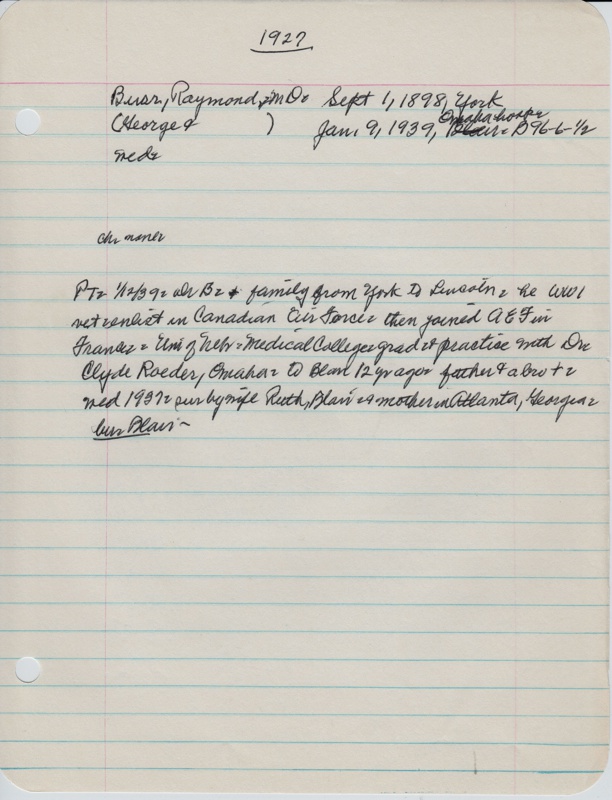 1927
Busr, Raymond, MD= Sept 1, 1898, York
Omaha hosp=
(George & ) Jan. 9, 1939, Blair= D 96-6-½
med=
chr
PT= 1/12/39= Dr B= & family from York to Lincoln= he WW1
vet= enlist in Canadian Air Force= then joined AEF in
France= = Uni of Nebr= Medical College= grad= & practice with Dr
Clyde Roeder, Omaha= to Blair 12 yr ago= father & a bro +=
med 1937= sur by wife Ruth, Blair= & mother in Atlanta, Georgia=
bur Blair-